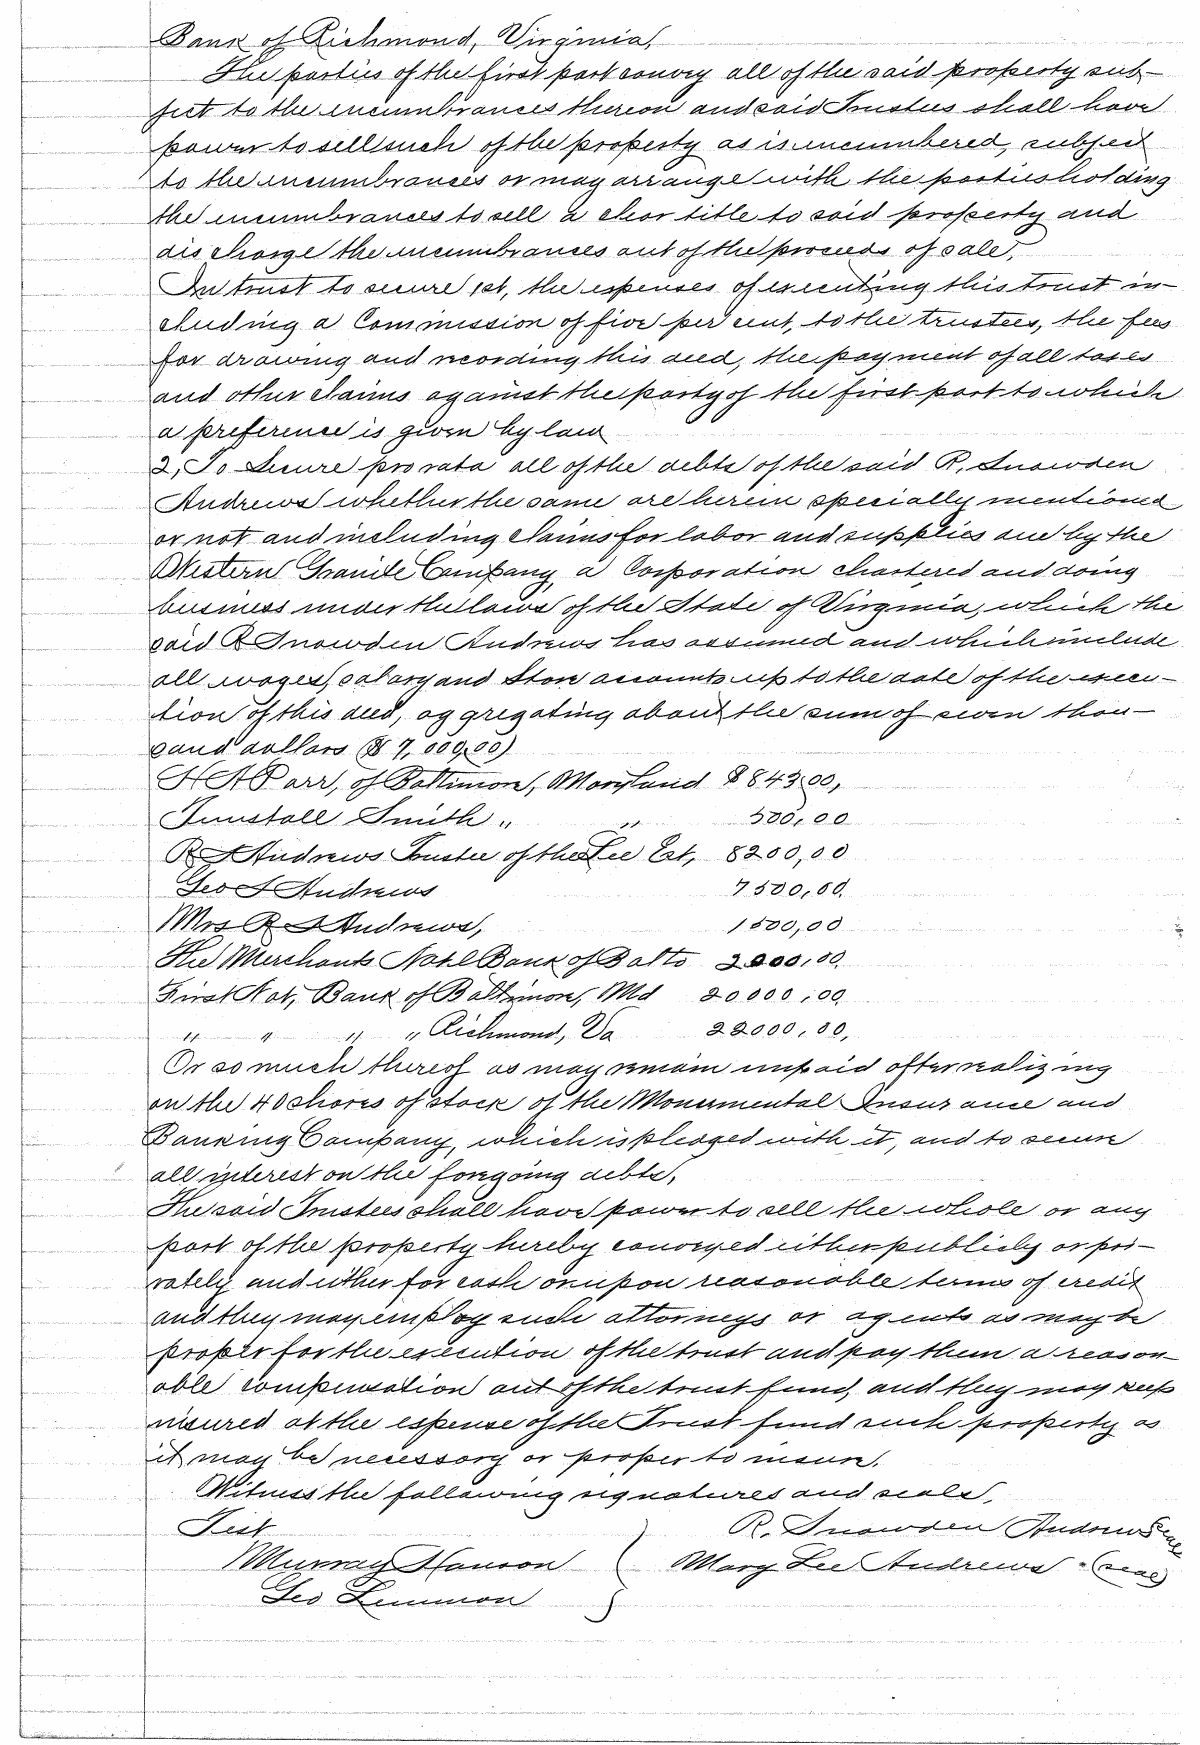 Bank of Richmond, Virginia,
The parties of the first part convey all of the said property sub-
ject to the encumbrances thereon and said Trustees shall have
power to sell such of the property as is incumbered, subject
to the incumbrances or may arrange with the parties holding
the incumbrances to sell a clear title to said property and
discharge the incumbrances out of the proceeds of sale,
In trust to secure 1st, the expenses of executing this trust in-
cluding a Commission of five per cent, to the trustees, the fees
for drawing and recording this deed, the payment of all taxes
and other claims against the party of the first part to which
a preference is given by law
2, To Secure pro rata all of the debts of the said R. Snowden
Andrews whether the same are herein specially mentioned
or not and including claims for labor and supplies due by the
Western Granite Company, a Corporation chartered and doing
business under the laws of the State of Virginia, which the
said R Snowden Andrews has assumed and which include
all wages, salary and Store accounts up to the date of the execu-
tion of this deed, aggregating about the sum of seven thou-
sand dollars ($ 7,000,00)
H A Parr, of Baltimore, Maryland $843,00,
Tunstall Smith " " 500,00
R S Andrews Trustee of the Lee Est, 8200,00
Geo S Andrews 7500,00,
Mrs R S Andrews, 1500,00
The Merchants Natl Bank of Balto 2000,00,
First Nat, Bank of Baltimore, Md 20000,00,
" " " " Richmond, Va 22000,00,
Or so much thereof as may remain unpaid after realizing
on the 40 shares of stock of the Monumental Insurance and
Banking Company, which is pledged with it, and to secure
all interest on the foregoing debts,
The said Trustees shall have power to sell the whole or any
part of the property hereby conveyed either publicly or pri-
vately and either for cash or upon reasonable terms of credit
and they may employ such attorneys or agents as may be
proper for the execution of the trust and pay them a reason-
able compensation out of the trust fund, and they may keep
insured at the expense of the Trust fund such property as
it may be necessary or proper to insure.
Witness the following signatures and seals,
Test R. Snowden Andrews Seal
Murray Hanson Mary Lee Andrews (seal)
Geo Lemmon